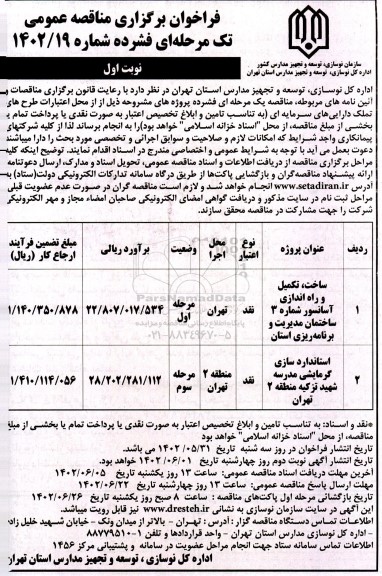 فراخوان برگزاری مناقصه عمومی
تک مرحله‌ای فشرده شماره ۱۴۰۲/۱۹
نوبت اول
سازمان نوسازی، توسعه و تجهیز مدارس کشور
اداره کل نوسازی، توسعه و تجهیز مدارس استان تهران
اداره کل نوسازی، توسعه و تجهیز مدارس استان تهران در نظر دارد با رعایت قانون برگزاری مناقصات و
آئین نامه های مربوطه، مناقصه یک مرحله ای فشرده پروژه های مشروحه ذیل از از محل اعتبارات طرح های
تملک دارایی‌های سرمایه ای (به تناسب تامین و ابلاغ تخصیص اعتبار به صورت نقدی یا پرداخت تمام یا
بخشی از مبلغ مناقصه، از محل "اسناد خزانه اسلامی" خواهد بود) را به انجام برساند لذا از کلیه شرکتهای
پیمانکاری واجد شرایط که امکانات لازم و صلاحیت و سوابق اجرائی و تخصصی مورد بحث را دارا میباشند
دعوت بعمل می آید با توجه به شرایط عمومی و اختصاصی مندرج در اسناد اقدام نمایند. توضیح اینکه کلیه
مراحل برگزاری مناقصه از دریافت اطلاعات و اسناد مناقصه عمومی، تحویل اسناد و مدارک، ارسال دعوتنامه
ارائه پیشنهاد مناقصه‌گران و بازگشایی پاکت‌ها از طریق درگاه سامانه تدارکات الکترونیکی دولت(ستاد) به
آدرس www.setadiran.ir انجام خواهد شد و لازم است مناقصه گران در صورت عدم عضویت قبلی
مراحل ثبت نام در سایت مذکور و دریافت گواهی امضای الکترونیکی صاحبان امضاء مجاز و مهر الکترونیکی
شرکت را جهت مشارکت در مناقصه محقق سازند.
ردیف عنوان پروژه نوع اعتبار محل اجرا وضعیت برآورد ریالی مبلغ تضمین فرآیند ارجاع کار (ریال)
۱ ساخت، تکمیل و راه اندازی آسانسور شماره ۳ ساختمان مدیریت و برنامه‌ریزی استان نقد تهران مرحله اول ۲۲/۸۰۷/۰۱۷/۵۳۴ ۱/۱۴۰/۳۵۰/۸۷۸
۲ استاندارد سازی گرمایشی مدرسه شهید تزکیه منطقه ۲ تهران نقد منطقه ۲ تهران مرحله سوم ۲۸/۲۰۲/۲۸۱/۱۱۲ ۱/۴۱۰/۱۱۴/۰۵۶
۰۲۱-۸۸۳۴۹۶۷۰-۵
*نقد و اسناد: به تناسب تامین و ابلاغ تخصیص اعتبار به صورت نقدی یا پرداخت تمام یا بخشی از مبلغ
مناقصه، از محل "اسناد خزانه اسلامی" خواهد بود
تاریخ انتشار فراخوان در روز سه شنبه تاریخ ۱۴۰۲/۰۵/۳۱ می باشد.
تاریخ انتشار آگهی نوبت دوم روز چهارشنبه تاریخ ۱۴۰۲/۰۶/۰۱ خواهد بود.
آخرین مهلت دریافت اسناد مناقصه عمومی: ساعت ۱۳ روز یکشنبه تاریخ ۱۴۰۲/۰۶/۰۵
مهلت ارسال پاسخ مناقصه عمومی: ساعت ۱۳ روز چهارشنبه تاریخ ۱۴۰۲/۰۶/۲۲
تاریخ بازگشائی مرحله اول پاکت‌های مناقصه: ساعت ۸ صبح روز یکشنبه تاریخ ۱۴۰۲/۰۶/۲۶
این آگهی در سایت سازمان نوسازی به نشانی www.dresteh.ir نیز قابل رویت میباشد.
اطلاعات تماس دستگاه مناقصه گزار: آدرس: تهران – بالاتر از میدان ونک – خیابان شهید خلیل زاده
– اداره کل نوسازی مدارس استان تهران – واحد قراردادها و تلفن ۱-۸۸۷۷۹۵۱۰
اطلاعات تماس سامانه ستاد جهت انجام مراحل عضویت در سامانه و پشتیبانی مرکز ۱۴۵۶
اداره کل نوسازی، توسعه و تجهیز مدارس استان تهران